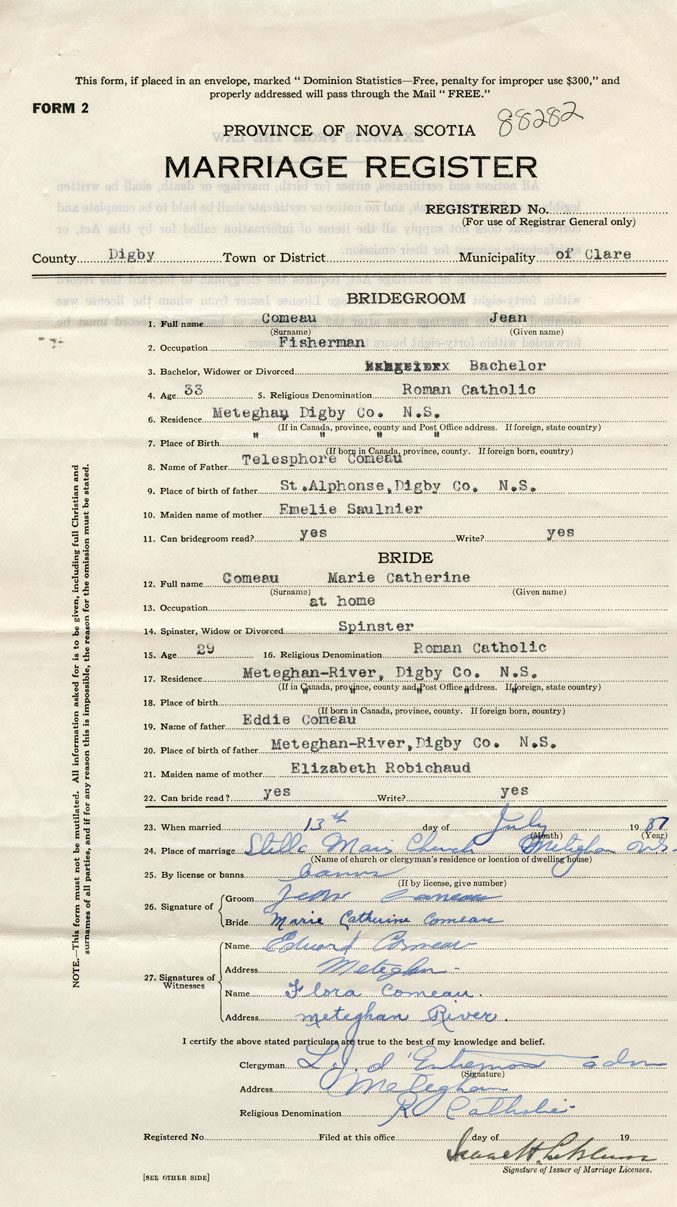 This form, if placed in an envelope, marked " Dominion Statistics—Free, penalty for improper use $300," and
properly addressed will pass through the Mail " FREE."
FORM 2
88282
PROVINCE OF NOVA SCOTIA
MARRIAGE REGISTER
REGISTERED No.
(For use of Registrar General only)
County Digby Town or District Municipality of Clare
BRIDEGROOM
1. Full name Comeau Jean
(Surname) (Given name)
2. Occupation Fisherman
3. Bachelor, Widower or Divorced Bachelor
4. Age 33 5. Religious Denomination Roman Catholic
6. Residence Meteghan Digby Co. N.S.
(If in Canada, province, county and Post Office address. If foreign, state country)
7. Place of Birth " " " "
(If born in Canada, province, county. If foreign born, country)
8. Name of Father Telesphore Comeau
9. Place of birth of father St.Alphonse,Digby Co. N.S.
10. Maiden name of mother Emelie Saulnier
11. Can bridegroom read? yes Write? yes
BRIDE
12. Full name Comeau Marie Catherine
(Surname) (Given name)
13. Occupation at home
14. Spinster, Widow or Divorced Spinster
15. Age 29 16. Religious Denomination Roman Catholic
17. Residence Meteghan-River, Digby Co. N.S.
(If in Canada, province, county and Post Office address. If foreign, state country)
18. Place of birth " " " " "
(If born in Canada, province, county. If foreign born, country)
19. Name of father Eddie Comeau
20. Place of birth of father Meteghan-River,Digby Co. N.S.
21. Maiden name of mother Elizabeth Robichaud
22. Can bride read? yes Write? yes
23. When married 13th day of July 19
(Month) (Year)
24. Place of marriage Stella Maris Church Meteghan N.S.
(Name of church or clergyman's residence or location of dwelling house)
25. By license or banns banns
(If by license, give number)
26. Signature of
Groom Jean Comeau
Bride Marie Catherine Comeau
27. Signatures of Witnesses
Name Edward Comeau
Address Meteghan
Name Flora Comeau.
Address meteghan River.
I certify the above stated particulars are true to the best of my knowledge and belief.
Clergyman L. J. d'Entremont adm
(Signature)
Address Meteghan
Religious Denomination R Catholic
Registered No. Filed at this office day of 19
Signature of Issuer of Marriage Licenses.
[SEE OTHER SIDE]
NOTE.—This form must not be mutilated. All information asked for is to be given, including full Christian and
surnames of all parties, and if for any reason this is impossible, the reason for the omission must be stated.